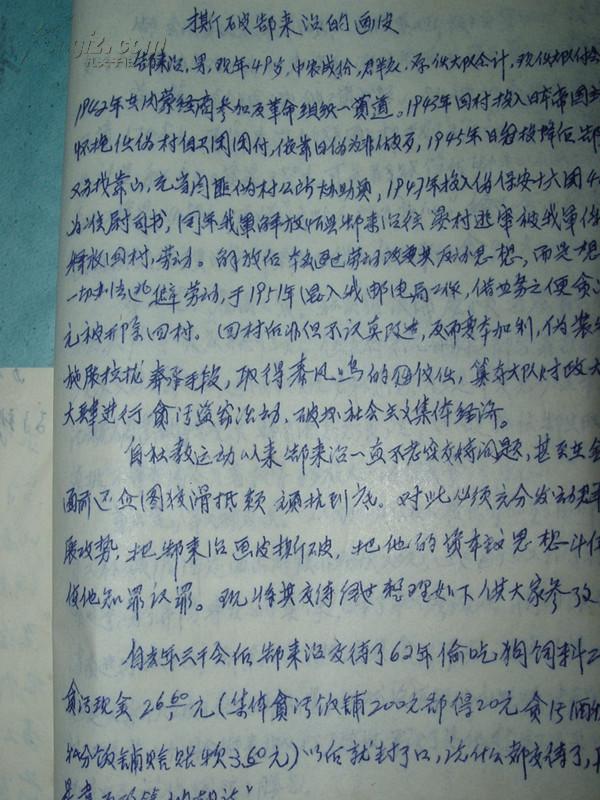 撕破郜来治的画皮
郜来治,男,现年49岁,中农成份,群众,原任大队会计,现任大队付会
1942年去内蒙经商参加反革命组织一贯道。1943年回村投入日本帝国主
怀抱任伪村自卫团团付,依靠日伪为非作歹,1945年日寇投降后郜
又寻找靠山,充当阎匪伪村公所协助员,1947年投入伪保安十六团4
为准尉司书,同年我军解放 郜来治往晏村逃窜被我军俘
释放回村劳动。解放后不通过劳动改变其反动思想,而是想
一切办法逃避劳动,于1951年混入 邮电局工作,借业务之便贪
元被开除回村。回村后非但不认真改造,反而变本加利,伪装
施展拉拢奉承手段,取得 的 ,篡夺大队财政大
大肆进行贪污盗窃活动,破坏社会主义集体经济。
自社教运动以来郜来治一直不老实交待问题,甚至在全
面前还企图狡滑抵赖顽抗到底。对此必须充分发动群
展攻势,把郜来治画皮撕破,把他的资本主义思想斗
使他知罪认罪。现将其交待 整理如下供大家参考
自去年三干会后郜来治交待了62年偷吃狗饲料
贪污现金26.60元(集体贪污饭铺200元郜得20元贪污
私分饭铺赔账款3.60元)以后就封了口,说什么都交待了,